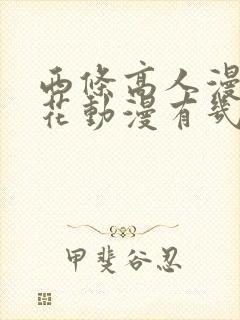 西條高人漫
花動漫有幾
甲斐谷忍